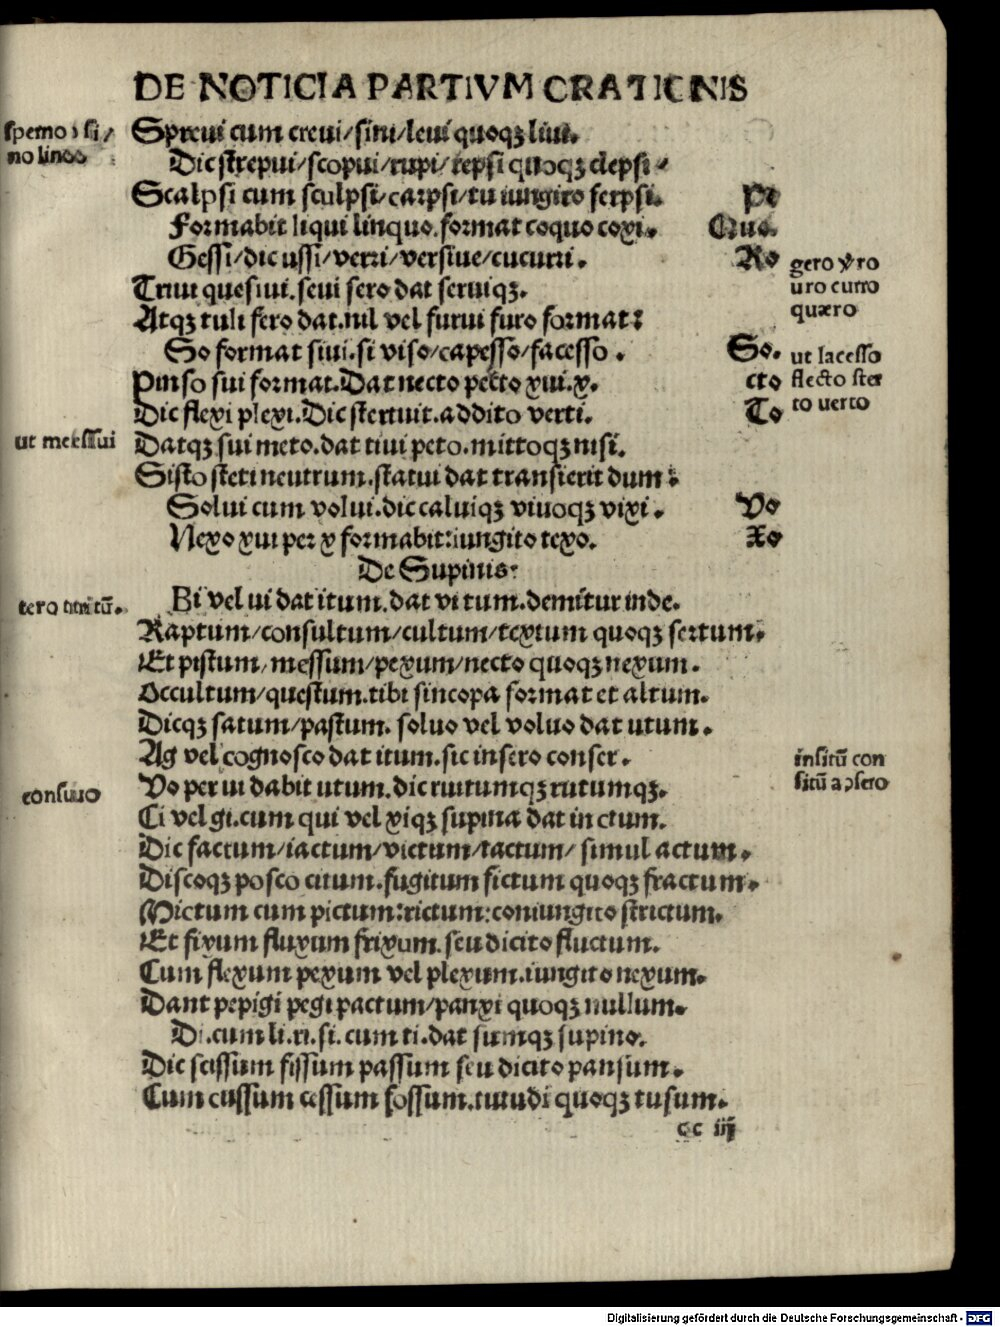 DE NOTICIA PARTIVM ORATIONIS
Spreui cum creui/sini/leui quoqꝫ liui.
Dic strepui/scopui/rupi/repsi quoqꝫ clepsi.
Scalpsi cum sculpsi/carpsi/tu iungito serpsi.
Po
Formabit liqui linquo.format coquo coxi.
Quo.
Gessi/dic ussi/verri/versiue/cucurri.
Ro
gero & ro
uro curro
quæro
Triui quesiui.seui sero dat seruiqꝫ.
Atqꝫ tuli fero dat.nil vel furui furo format:
So format siui.si viso/capesso/facesso.
So.
ut lacesso
Pinso sui format.Dat necto pecto xui.x.
cto
flecto ster
Dic flexi plexi.Dic stertuit.addito verti.
To
to uerto
ut messui
Datqꝫ sui meto.dat tiui peto.mittoqꝫ misi.
Sisto steti neutrum.statui dat transierit dum:
Solui cum volui.dic caluiqꝫ viuoqꝫ vixi.
Vo
Nexo xui per x formabit:iungito texo.
Xo
De Supinis:
Bi vel ui dat itum.dat vi tum.demitur inde.
Raptum/consultum/cultum/textum quoqꝫ sertum.
Et pistum/messum/pexum/necto quoqꝫ nexum.
Occultum/questum.tibi sincopa format et altum.
Dicqꝫ satum/pastum. soluo vel voluo dat utum.
Ag vel cognosco dat itum.sic insero conser.
insitū con
situ a ꝯsero
consuuo
Vo per ui dabit utum.dic ruitumqꝫ rutumqꝫ.
Ci vel gi.cum qui vel xiqꝫ supina dat in ctum.
Dic factum/iactum/victum/tactum/ simul actum.
Discoqꝫ posco citum.fugitum fictum quoqꝫ fractum.
Mictum cum pictum:rictum:coniungito strictum.
Et fixum fluxum frixum.seu dicito fluctum.
Cum flexum pexum vel plexum.iungito nexum.
Dant pepigi pegi pactum/panxi quoqꝫ nullum.
Di.cum li.ri.si.cum ti.dat sumqꝫ supino.
Dic scissum fissum passum seu dicito pansum.
Cum cussum cessum fossum.tutudi quoqꝫ tusum.
cc iij
Digitalisierung gefördert durch die Deutsche Forschungsgemeinschaft - DFG